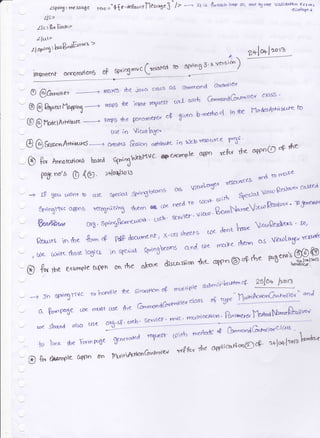 <spring:message code="${e.defaultMessage}"/> → It is Business loop on and by the Validation Errors
displayed
</c:
</c:forEach>
</ul>
</spring:hasBindErrors>
24/09/2013
Important annotations of springmvc (related to spring 3.x version)
① @Controller → makes the java class as command controller
② @RequestMapping → maps the input request call with CommandController class.
③ @ModelAttribute → maps the parameter of given b.method in the ModelAttribute to
use in View layer.
④ @SessionAttributes → creates Session attribute in Web resource page.
※ For Annotations based Spring WebMVC example appn refer the appn① of the
page no's
→ If you want to use special spring beans as viewlayer resources and to make
springmvc appns recognizing them we need to work with special ViewResolver called
org.springframework.web.servlet.view.BeanNameViewResolver. To generate
Results in the form of Pdf document, x-cel sheets we dont have ViewResolvers. So,
we write those logics in special spring beans and we make them as ViewLayer resources
※ for the example appn on the above discussion the appn② of the page no's
→ In spring MVC to handle the situation of multiple submit buttons of 25/09/2013
a form page we must use the CommandController class of type MultiActionController and
we should also use org.sf.web.servlet.mvc.multiaction.ParameterMethodNameResolver
to link the Form page generated request with methods of CommandController class.
※ for example appn on MultiActionController refer the application① of 24/09/2013 handout